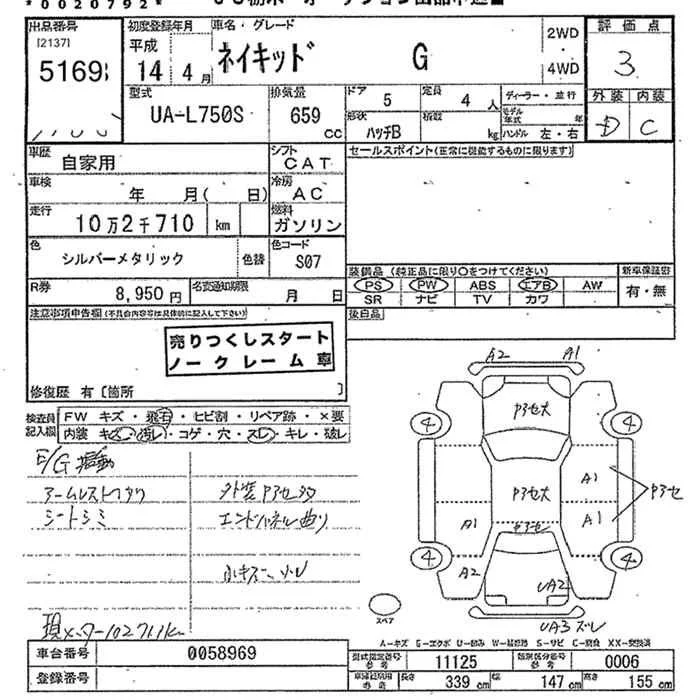 *0020792*
出品番号
[2137]
5169
初度登録年月
平成
14 4月
車名・グレード
ネイキッド G
2WD
4WD
評価点
3
型式
UA-L750S
排気量
659
cc
ドア
5
定員
4人
ディーラー・並行
形状
ハッチB
積数
kg
モデル年式
年
ハンドル 左・右
外装 内装
D C
車歴
自家用
シフト
CAT
セールスポイント(正常に機能するものに限ります)
車検
年 月( 日)
冷房
AC
走行
10万2千710 km
燃料
ガソリン
色
シルバーメタリック
色替
色コード
S07
装備品 (純正品に限り○をつけてください)
PS PW ABS エアB AW
SR ナビ TV カワ
新車保証書
有・無
R券
8,950円
名変通知期限
月 日
後日品
注意事項申告欄(不具合内容等は具体的に記入して下さい)
売りつくしスタート
ノークレーム車
修復歴 有〔箇所 〕
検査員記入欄
FW キズ・飛石・ヒビ割・リペア跡・×要
内装 キズ・汚れ・コゲ・穴・スレ・キレ・破レ
E/G
アームレスト
シートシミ
外装アセ
エンドパネル曲り
小キズ
現メーター102711km
A2 A1
アセ大
4 4
A1
アセ大
A1
A1
アセ
アセ
4 4
A2
UA2
UA3 ズレ
スペア
A-キズ G-エクボ U-凹み W-補修跡 S-サビ C-腐食 XX-交換済
車台番号
0058969
登録番号
型式指定番号
参考
11125
類別区分番号
参考
0006
参考
長さ 339cm 幅 147cm 高さ 155cm